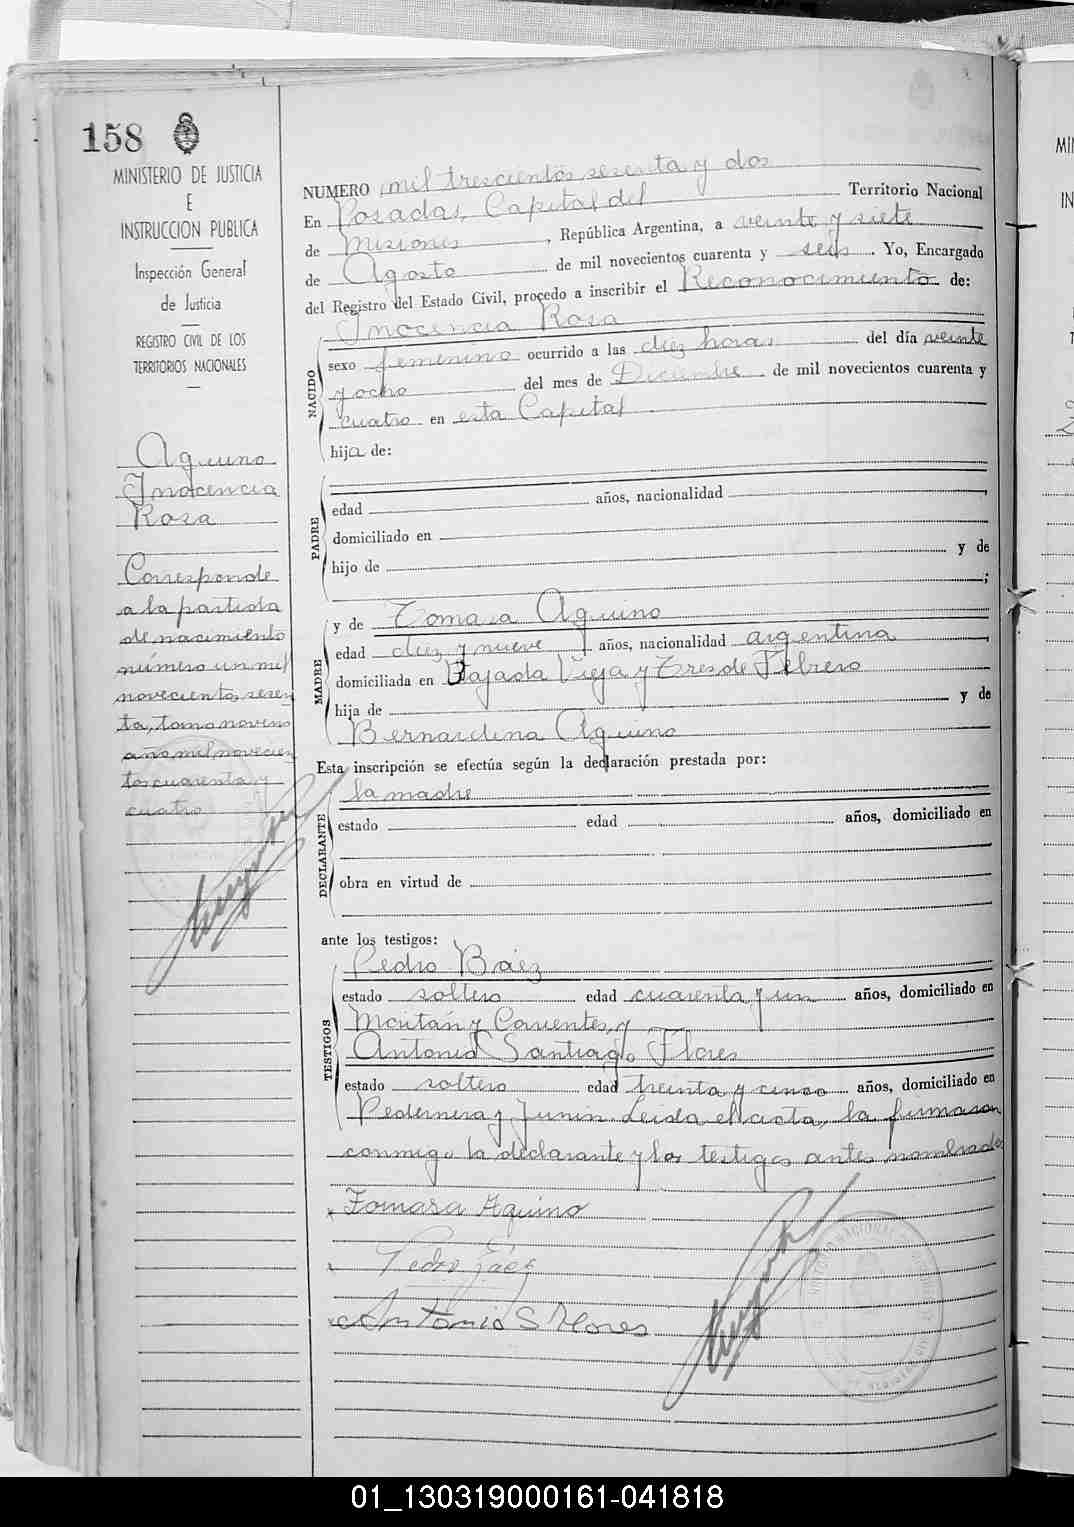 158
MINISTERIO DE JUSTICIA
E
INSTRUCCION PUBLICA
Inspección General
de Justicia
REGISTRO CIVIL DE LOS
TERRITORIOS NACIONALES
Aquino
Inocencia
Rosa
Corresponde
a la partida
de nacimiento
número un mil
novecientos sesen
ta, tomo noveno
año mil novecien
tos cuarenta y
cuatro
NUMERO mil trescientos sesenta y dos
En Posadas, Capital del Territorio Nacional
de Misiones, República Argentina, a veinte y siete
de Agosto de mil novecientos cuarenta y seis. Yo, Encargado
del Registro del Estado Civil, procedo a inscribir el Reconocimiento de:
Inocencia Rosa
NACIDO
sexo femenino ocurrido a las diez horas del día veinte
y ocho del mes de Diciembre de mil novecientos cuarenta y
cuatro en esta Capital
hija de:
PADRE
edad años, nacionalidad ,
domiciliado en
hijo de y de
;
MADRE
y de Tomasa Aquino
edad diez y nueve años, nacionalidad argentina,
domiciliada en Bajada Vieja y Tres de Febrero
hija de y de
Bernardina Aquino
Esta inscripción se efectúa según la declaración prestada por:
DECLARANTE
la madre
estado edad años, domiciliado en
obra en virtud de
ante los testigos:
TESTIGOS
Pedro Báez
estado soltero edad cuarenta y un años, domiciliado en
y Corrientes, y
Antonio Santiago Flores
estado soltero edad treinta y cinco años, domiciliado en
Pedernera y Junin. Leida el acta, la firmaron
conmigo la declarante y los testigos antes nombrados
Tomasa Aquino
Pedro Báez
Antonio S Flores
MI
IN
01_130319000161-041818